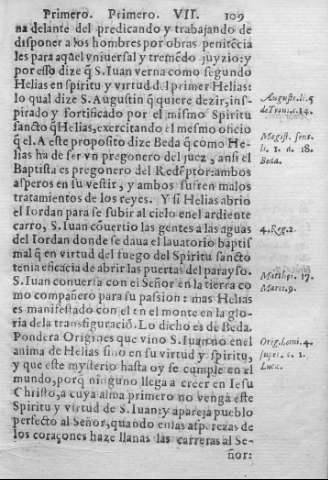 Primero. Primero. VII. 109
na delante del predicando y trabajando de
disponer a los hombres por obras penitēcia
les para aq̄el vniuersal y tremēdo juyzio: y
por esso dize q̄ S. Iuan verna como segundo
Helias en spiritu y virtud d l primer Helias:
lo qual dize S. Augustin q̄ quiere dezir, ins-
pirado y fortificado por el mismo Spiritu
sancto q̄ Helias, exercitando el mesmo oficio
q̄ el. A este proposito dize Beda q̄ como He-
lias ha de ser vn pregonero del juez, ansi el
Baptista es pregonero del Redēptor: ambos
asperos en su vestir, y ambos sufren malos
tratamientos de los reyes. Y si Helias abrio
el Iordan para se subir al cielo en el ardiente
carro, S. Iuan cōuertio las gentes a las aguas
del Iordan donde se daua el lauatorio baptis
mal q̄ en virtud del fuego del Spiritu sancto
tenia eficacia de abrir las puertas del parayso.
S. Iuan conuersa con el Señor en la tierra co
mo compañero para su passion: mas Helias
es manifestado con el en el monte en la glo-
ria de la transfiguraciō. Lo dicho es de Beda.
Pondera Origines que vino S. Iuan no en el
anima de Helias sino en su virtud y spiritu,
y que este mysterio hasta oy se cumple en el
mundo, porq̄ ninguno llega a creer en Iesu
Christo, a cuya alma primero no venga este
Spiritu y virtud de S. Iuan: y apareja pueblo
perfecto al Señor, quando en las asperezas de
los coraçones haze llanas las carreras al Se-
ñor:
August. li. 5
de Trini. c. 14.
Magist. sent.
li. 1. d. 18.
Beda.
4. Reg. 2.
Matthei. 17.
Marci. 9.
Orig. homi. 4.
super. c. 1.
Lucæ.